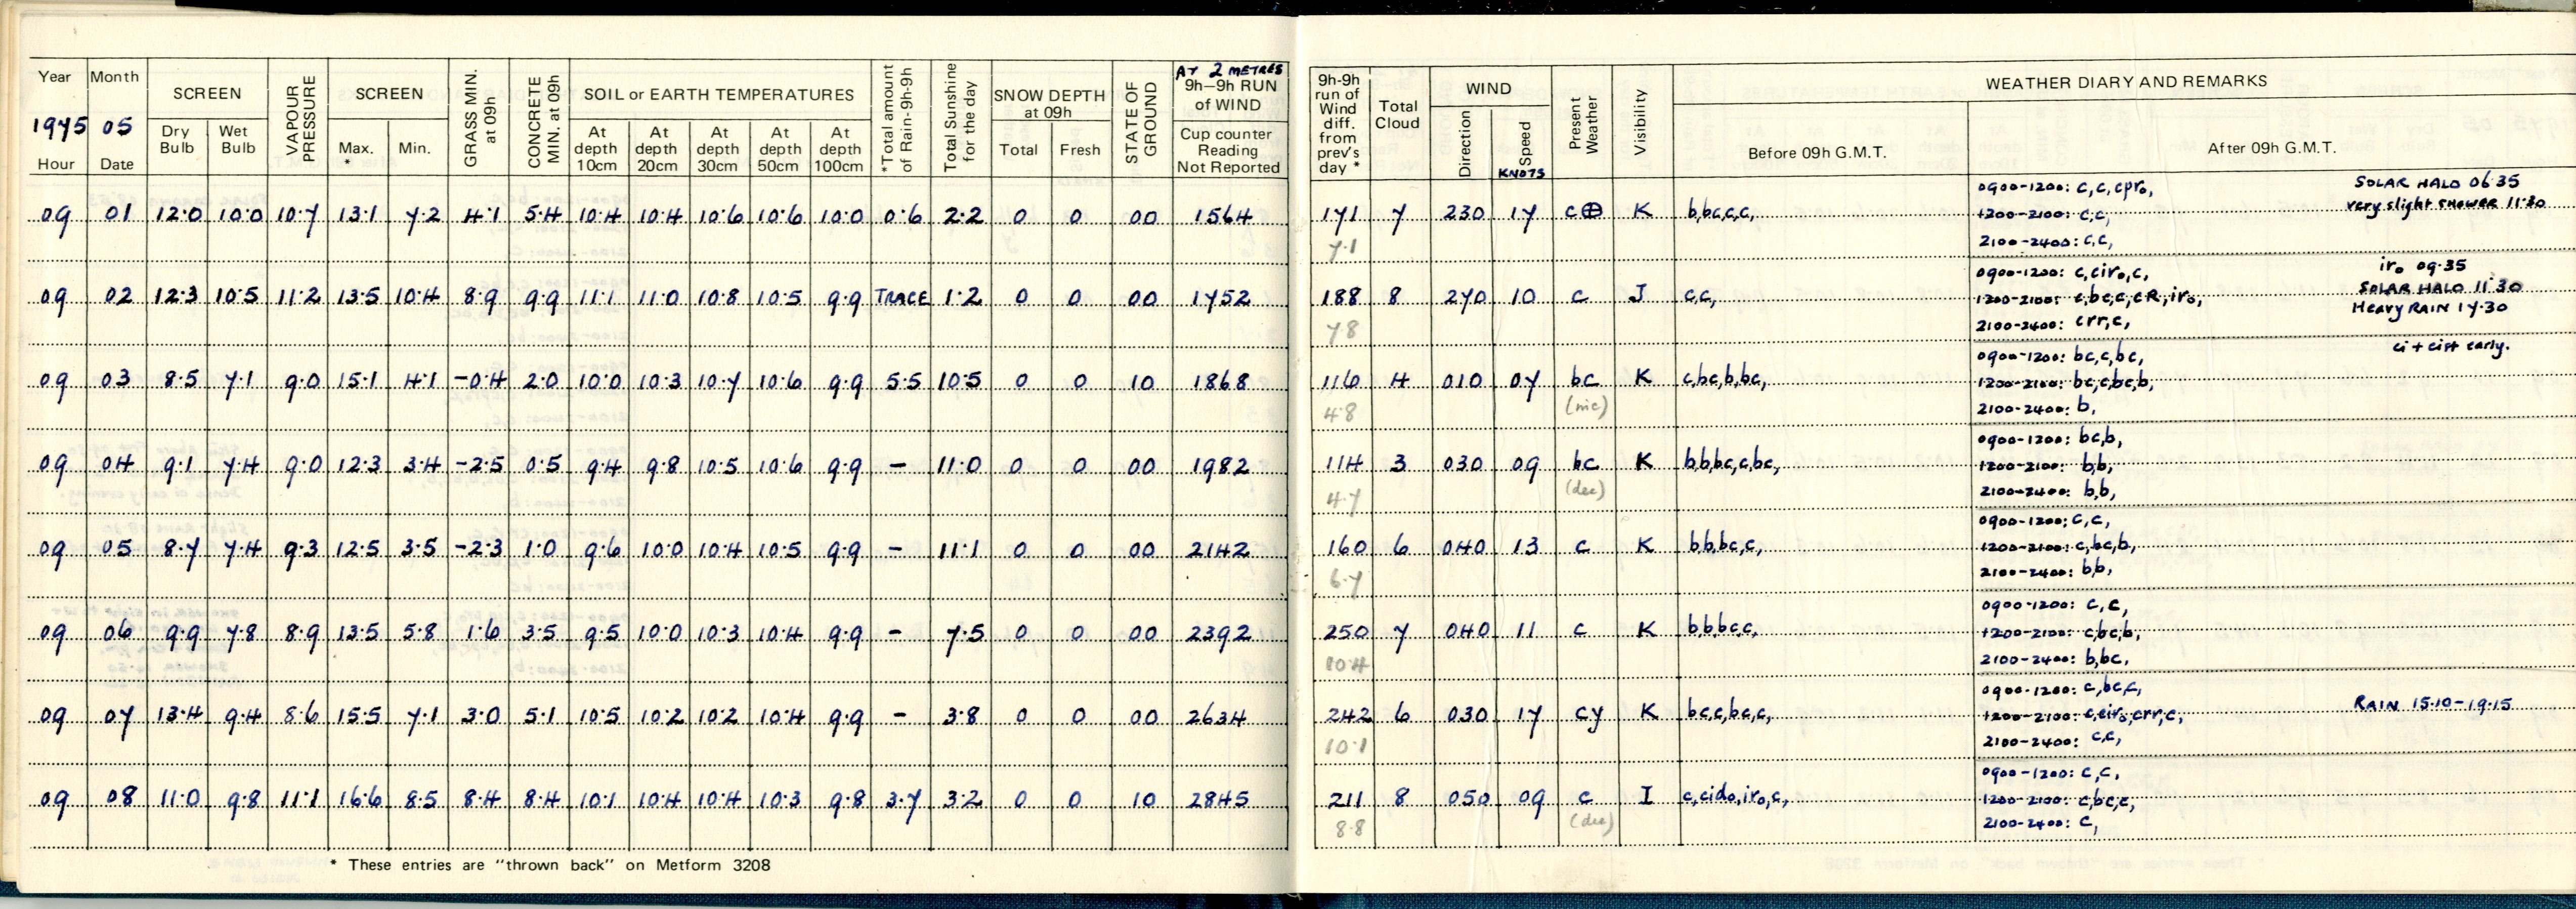 Year Month
1975 05
Hour Date
SCREEN
Dry Bulb
Wet Bulb
VAPOUR PRESSURE
SCREEN
Max. *
Min.
GRASS MIN. at 09h
CONCRETE MIN. at 09h
SOIL or EARTH TEMPERATURES
At depth 10cm
At depth 20cm
At depth 30cm
At depth 50cm
At depth 100cm
*Total amount of Rain-9h-9h
Total Sunshine for the day
SNOW DEPTH at 09h
Total
Fresh
STATE OF GROUND
AT 2 METRES
9h–9h RUN of WIND
Cup counter Reading Not Reported
9h-9h run of Wind diff. from prev's day *
Total Cloud
WIND
Direction
Speed
KNOTS
Present Weather
Visibility
WEATHER DIARY AND REMARKS
Before 09h G.M.T.
After 09h G.M.T.
09 01 12·0 10·0 10·7 13·1 7·2 4·1 5·4 10·4 10·4 10·6 10·6 10·0 0·6 2·2 0 0 00 1564
171 7 230 17 c⊕ K b,bc,c,c,
7·1
0900-1200: c,c,cpr₀,
1200-2100: c,c,
2100-2400: c,c,
SOLAR HALO 06·35
very slight SHOWER 11·30
09 02 12·3 10·5 11·2 13·5 10·4 8·9 9·9 11·1 11·0 10·8 10·5 9·9 TRACE 1·2 0 0 00 1752
188 8 270 10 c J c,c,
7·8
0900-1200: c,cir₀,c,
1200-2100: c,bc,c,cR,ir₀,
2100-2400: crr,c,
ir₀ 09·35
SOLAR HALO 11·30
Heavy RAIN 17·30
09 03 8·5 7·1 9·0 15·1 4·1 -0·4 2·0 10·0 10·3 10·7 10·6 9·9 5·5 10·5 0 0 10 1868
116 4 010 07 bc K c,bc,b,bc,
4·8 (inc)
0900-1200: bc,c,bc,
1200-2100: bc,c,bc,b,
2100-2400: b,
ci + cist early.
09 04 9·1 7·4 9·0 12·3 3·4 -2·5 0·5 9·4 9·8 10·5 10·6 9·9 - 11·0 0 0 00 1982
114 3 030 09 bc K b,b,bc,c,bc,
4·7 (dec)
0900-1200: bc,b,
1200-2100: b,b,
2100-2400: b,b,
09 05 8·7 7·4 9·3 12·5 3·5 -2·3 1·0 9·6 10·0 10·4 10·5 9·9 - 11·1 0 0 00 2142
160 6 040 13 c K b,b,bc,c,
6·7
0900-1200: c,c,
1200-2100: c,bc,b,
2100-2400: b,b,
09 06 9·9 7·8 8·9 13·5 5·8 1·6 3·5 9·5 10·0 10·3 10·4 9·9 - 7·5 0 0 00 2392
250 7 040 11 c K b,b,bc,c,
10·4
0900-1200: c,c,
1200-2100: c,bc,b,
2100-2400: b,bc,
09 07 13·4 9·4 8·6 15·5 7·1 3·0 5·1 10·5 10·2 10·2 10·4 9·9 - 3·8 0 0 00 2634
242 6 030 17 cy K bc,c,bc,c,
10·1
0900-1200: c,bc,c,
1200-2100: c,cir₀,crr,c,
2100-2400: c,c,
RAIN 15·10-19·15
09 08 11·0 9·8 11·1 16·6 8·5 8·4 8·4 10·1 10·4 10·4 10·3 9·8 3·7 3·2 0 0 10 2845
211 8 050 09 c I c,cid₀,ir₀,c,
8·8 (dec)
0900-1200: c,c,
1200-2100: c,bc,c,
2100-2400: c,
* These entries are "thrown back" on Metform 3208